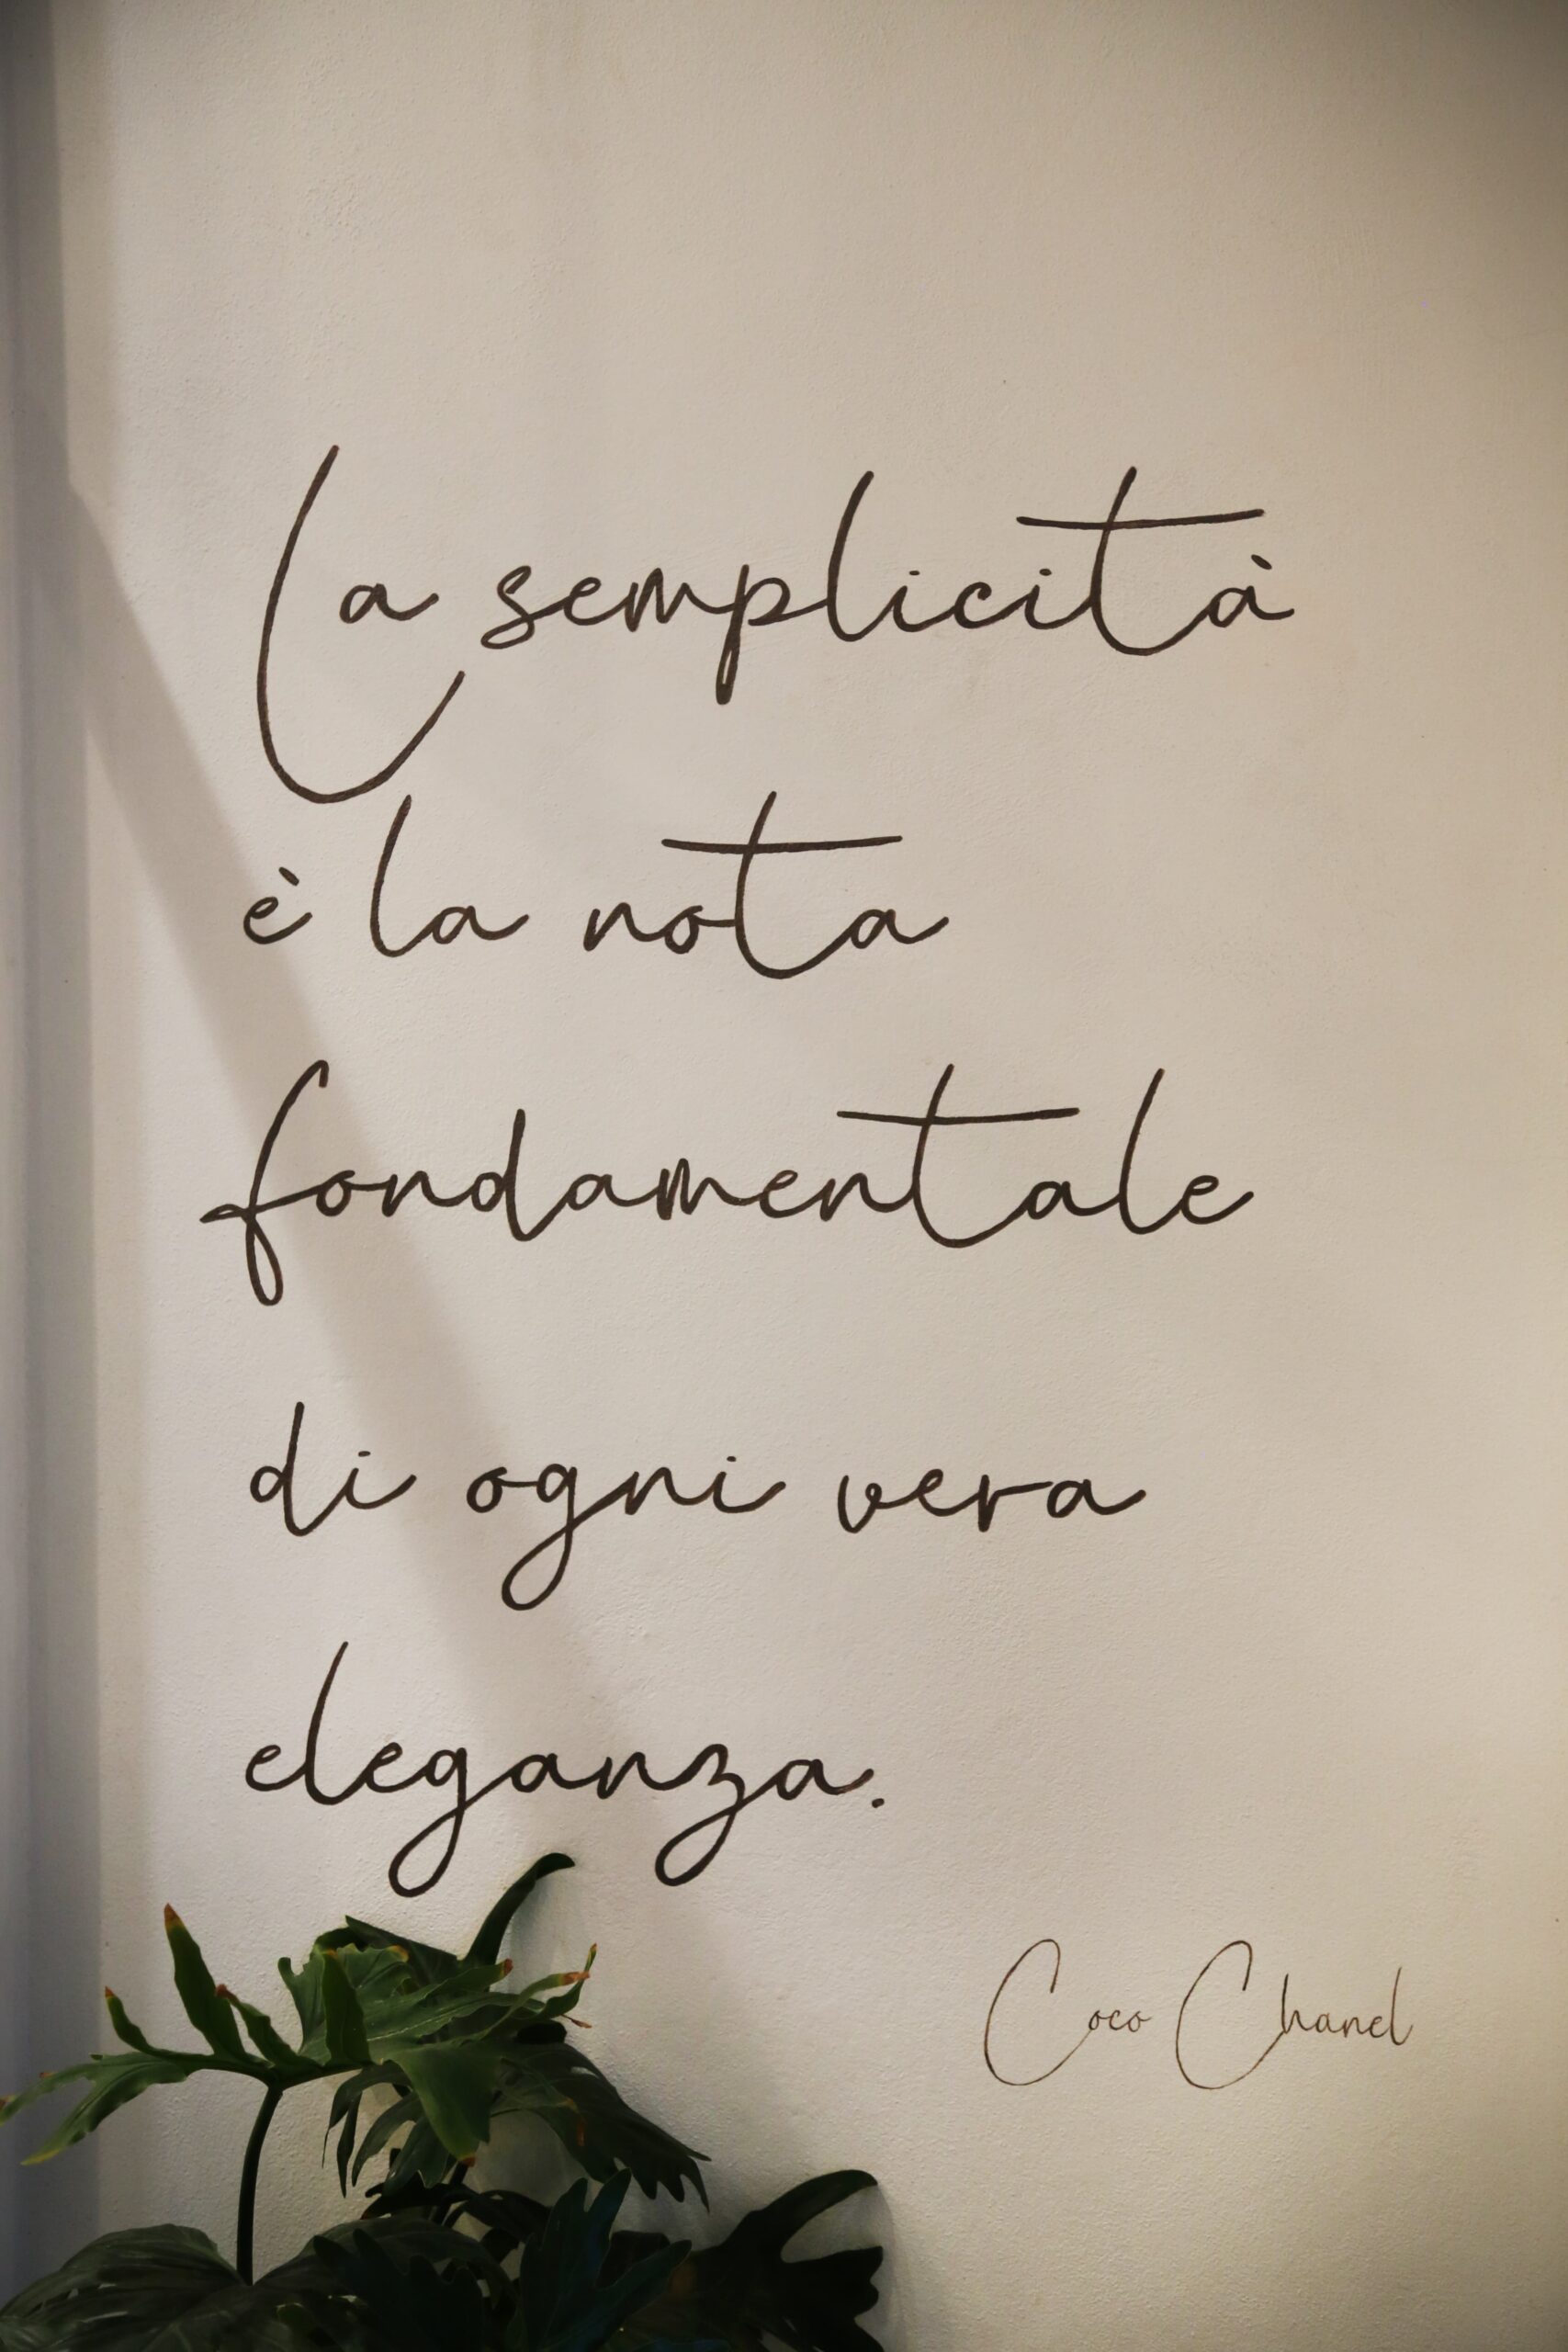 La semplicità
è la nota
fondamentale
di ogni vera
eleganza.
Coco Chanel